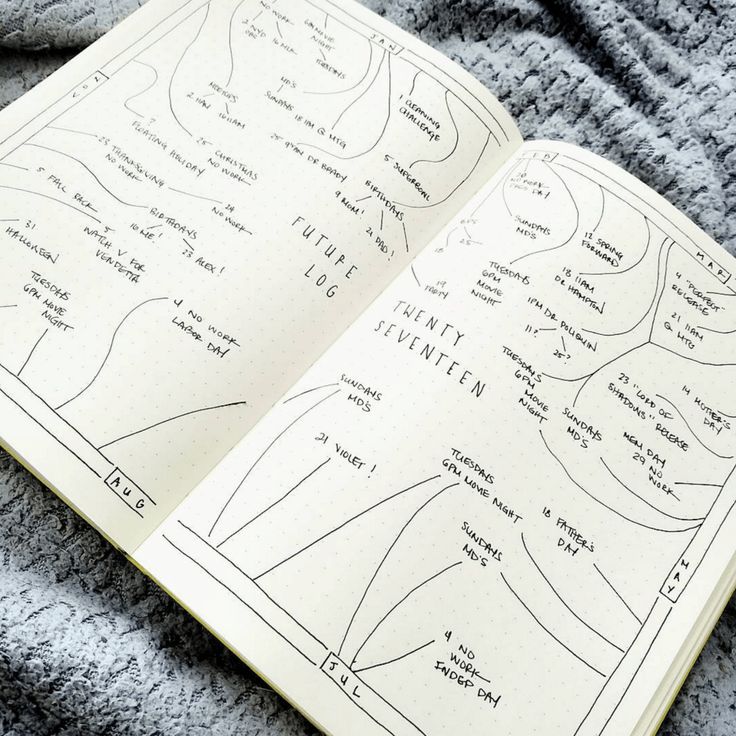 JAN
NO WORK
2 NYD
OBS
16 MLK
6PM MOVIE
NIGHT
TUESDAYS
MD'S
SUNDAYS
MEETINGS
2 11AM
16 11AM
18 11AM @ MTG
25 9AM DR BRADY
1 CLEANING
CHALLENGE
5
BIRTHDAYS
9 MOM!
21 DAD!
NOV
?
FLOATING HOLIDAY
25 CHRISTMAS
NO WORK
23 THANKSGIVING
NO WORK
24
NO WORK
5 FALL BACK
BIRTHDAYS
16 ME!
23 ALEX!
5
WATCH V FOR
VENDETTA
31
HALLOWEEN
TUESDAYS
6PM MOVIE
NIGHT
4 NO WORK
LABOR DAY
AUG
FUTURE
LOG
FEB
20
NO WORK
PRES DAY
SUNDAYS
MD'S
12 SPRING
FORWARD
MAR
25
18
19
PARTY
TUESDAYS
6PM
MOVIE
NIGHT
18 11AM
DR HAMPTON
1PM DR POLIQUIN
11?
25?
4 "PERFECT"
RELEASE
21 11AM
@ MTG
TWENTY
SEVENTEEN
TUESDAYS
6PM
MOVIE
NIGHT
SUNDAYS
MD'S
23 "LORD OF
SHADOWS" RELEASE
14 MOTHER'S
DAY
MEM DAY
29 NO
WORK
MAY
SUNDAYS
MD'S
21 VIOLET!
TUESDAYS
6PM MOVIE NIGHT
SUNDAYS
MD'S
18 FATHER'S
DAY
4 NO
WORK
INDEP DAY
JUL